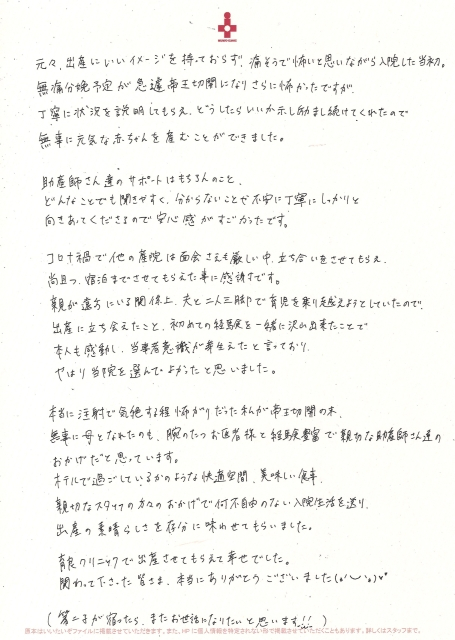 元々、出産にいいイメージを持っておらず、痛そうで怖いと思いながら入院した当初。
無痛分娩予定が急遽帝王切開になりさらに怖かったですが、
丁寧に状況を説明してもらえ、どうしたらいいか示し励まし続けてくれたので
無事に元気な赤ちゃんを産むことができました。
助産師さん達のサポートはもちろんのこと、
どんなことでも聞きやすく、分からないことや不安に丁寧にしっかりと
向きあってくださるので安心感がすごかったです。
コロナ禍で他の産院は面会さえも厳しい中、立ち合いをさせてもらえ、
尚且つ、宿泊までさせてもらえた事に感謝です。
親が遠方にいる関係上、夫と二人三脚で育児を乗り越えようとしていたので、
出産に立ち会えたこと、初めての経験を一緒に沢山出来たことで
本人も感動し、当事者意識が芽生えたと言っており、
やはり当院を選んでよかったと思いました。
本当に注射で気絶する程怖がりだった私が帝王切開の末、
無事に母となれたのも、腕のたつお医者様と経験豊富で親切な助産師さん達の
おかげだと思っています。
ホテルで過ごしているかのような快適空間、美味しい食事、
親切なスタッフの方々のおかげで何不自由のない入院生活を送り、
出産の素晴らしさを存分に味わせてもらいました。
クリニックで出産させてもらえて幸せでした。
関わって下さった皆さま、本当にありがとうございました(o'◡'o)♥
(第二子が宿ったら、またお世話になりたいと思います!!)
原本はいいたいぞファイルに掲載させていただきます。また、HPに個人情報を特定されない形で掲載させていただくこともあります。詳しくはスタッフまで。